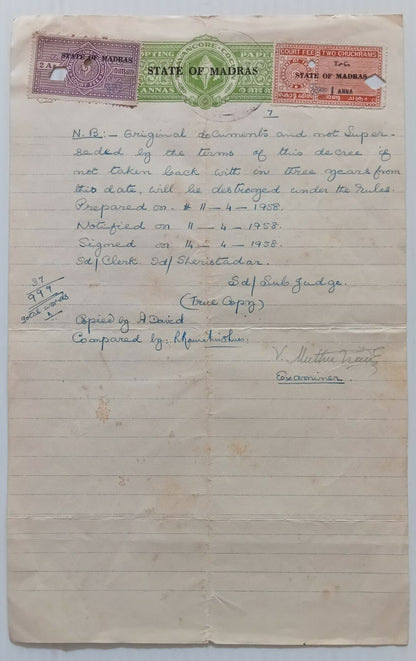 STATE OF MADRAS
2 AN
OPYING
ANCORE-COCHIN
PAP
STATE OF MADRAS
ANNAS
COURT FEE TWO CHUCKRAMS
T.-C.
STATE OF MADRAS
1 ANNA
7
N.B:- Original documents and not Super-
seded by the terms of this decree if
not taken back with in three years from
this date, will be destroyed under the Rules.
Prepared on 11-4-1958.
Notified on 11-4-1958.
Signed on 14-4-1958.
Sd/Clerk. Sd/Sheristadar.
Sd/Sub Judge.
(True Copy)
37
999
total words
Copied by A David
Compared by:
V.
Examiner.